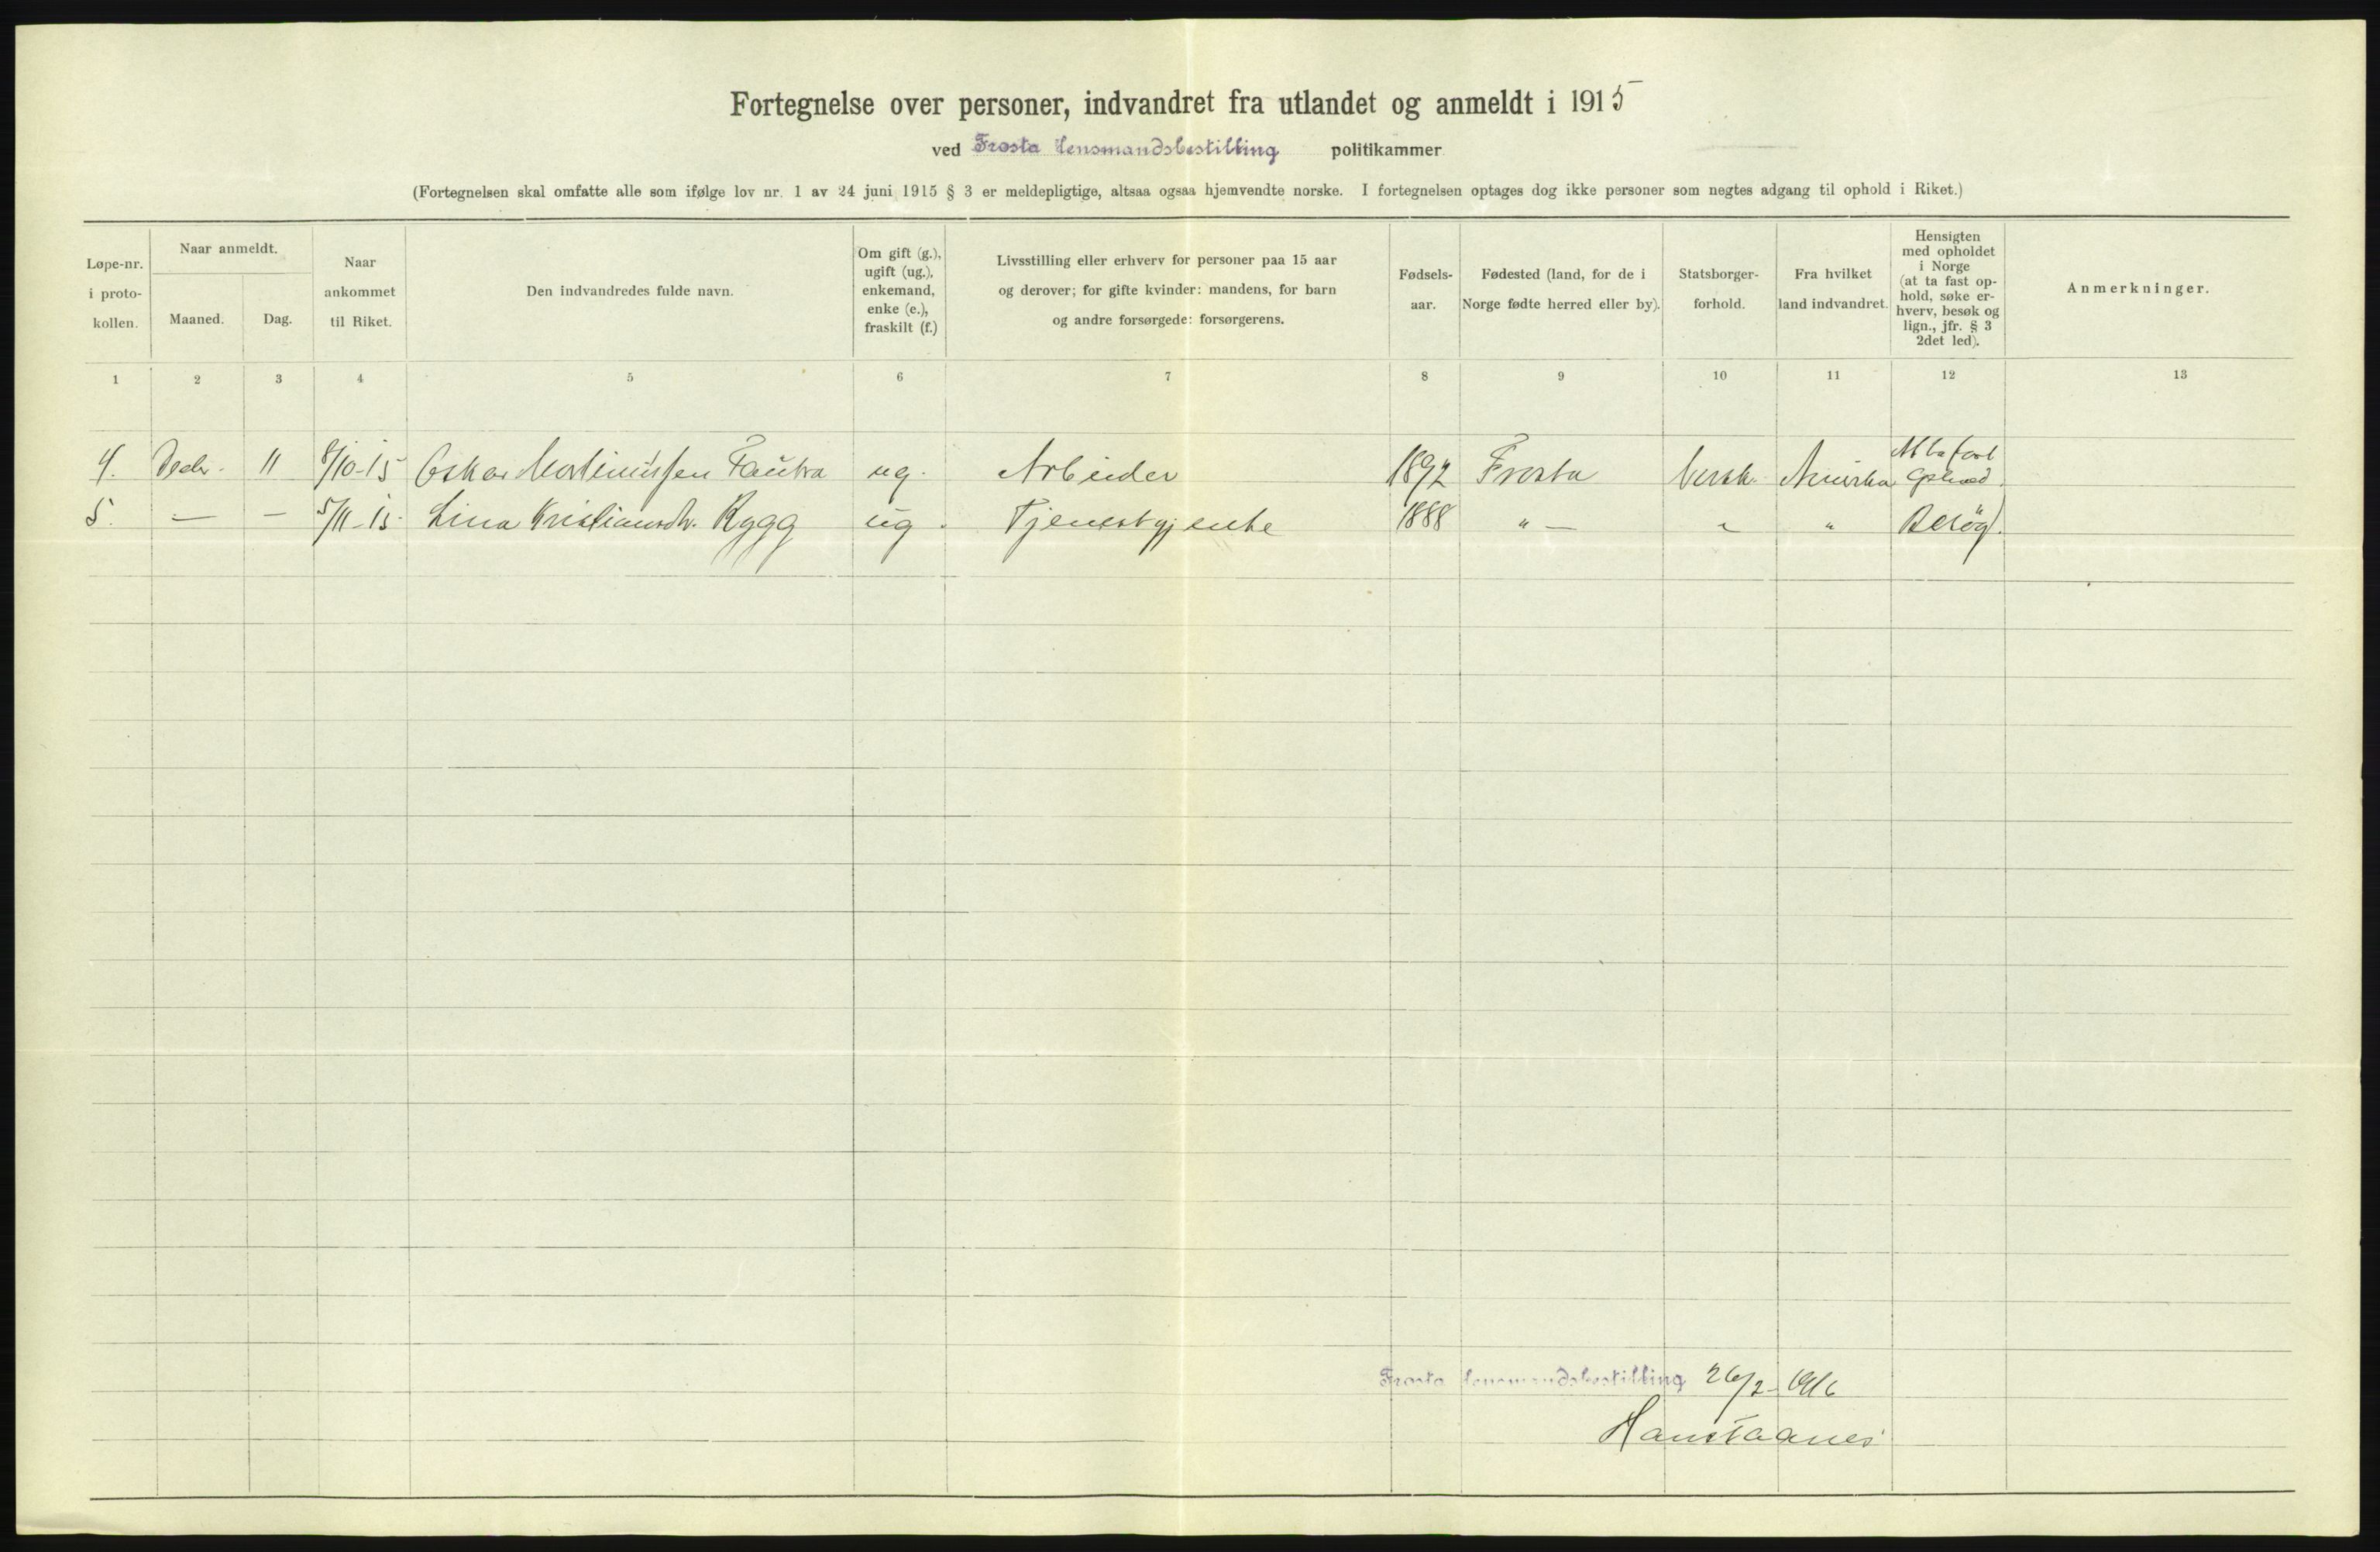 Fortegnelse over personer, indvandret fra utlandet og anmeldt i 1915
ved Frosta lensmandsbestilling politikammer
(Fortegnelsen skal omfatte alle som ifølge lov nr. 1 av 24 juni 1915 § 3 er meldepligtige, altsaa ogsaa hjemvendte norske. I fortegnelsen optages dog ikke personer som negtes adgang til ophold i Riket.)
Løpe-nr. i proto-kollen.
Naar anmeldt.
Maaned.
Dag.
Naar ankommet til Riket.
Den indvandredes fulde navn.
Om gift (g.), ugift (ug.), enkemand, enke (e.), fraskilt (f.)
Livsstilling eller erhverv for personer paa 15 aar og derover; for gifte kvinder: mandens, for barn og andre forsørgede: forsørgerens.
Fødsels-aar.
Fødested (land, for de i Norge fødte herred eller by).
Statsborger-forhold.
Fra hvilket land indvandret.
Hensigten med opholdet i Norge (at ta fast op-hold, søke er-hverv, besøk og lign., jfr. § 3 2det led).
Anmerkninger.
1 2 3 4 5 6 7 8 9 10 11 12 13
4. Decbr. 11 8/10-15 Oskar Martinussen Tautra ug. Arbeider 1892 Frosta Norsk. Amerika At ta fast Ophold.
5. — — 5/11-15. Lina Kristiansdtr. Rygg ug. Tjenestgjente 1888 " — " " Besøg.
Frosta lensmandsbestilling 26/2-1916